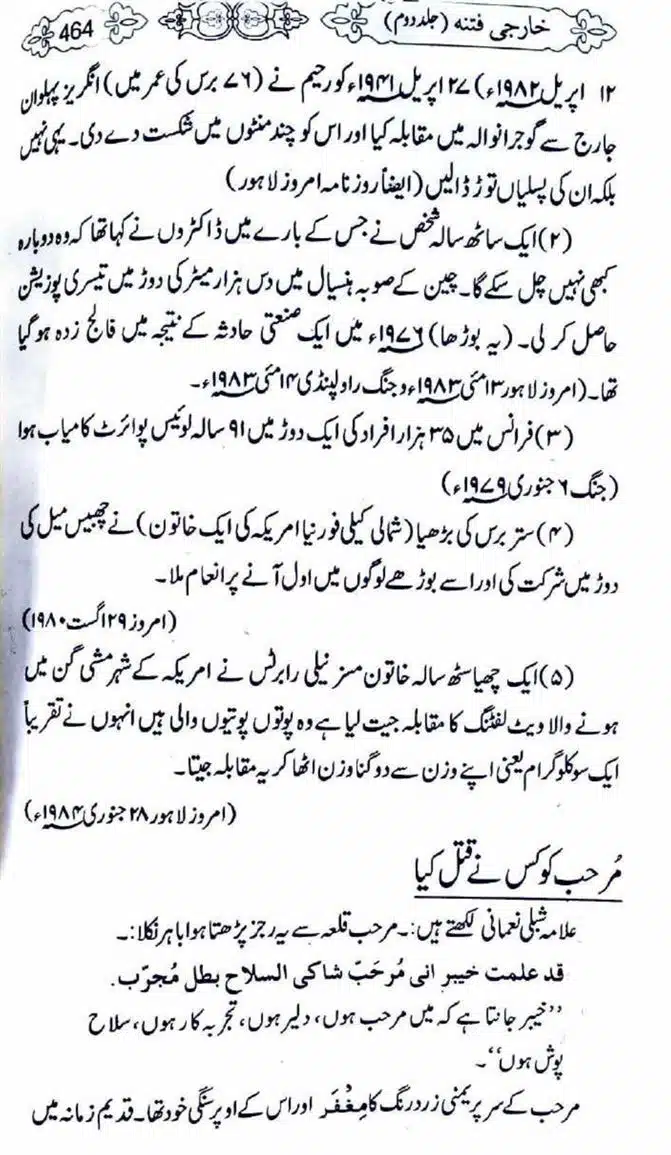 خارجی فتنہ (جلد دوم)
464
۱۲ اپریل ۱۹۸۲ء) ۲۷ اپریل ۱۹۴۱ء کو رحیم نے (۷۶ برس کی عمر میں) انگریز پہلوان
جارج سے گوجرانوالہ میں مقابلہ کیا اور اس کو چند منٹوں میں شکست دے دی۔ یہی نہیں
بلکہ ان کی پسلیاں توڑ ڈالیں (ایضاً روزنامہ امروز لاہور)
(۲) ایک ساٹھ سالہ شخص نے جس کے بارے میں ڈاکٹروں نے کہا تھا کہ وہ دوبارہ
کبھی نہیں چل سکے گا۔ چین کے صوبہ ہنسیال میں دس ہزار میٹر کی دوڑ میں تیسری پوزیشن
حاصل کر لی۔ (یہ بوڑھا) ۱۹۷۶ء میں ایک صنعتی حادثہ کے نتیجہ میں فالج زدہ ہو گیا
تھا۔ (امروز لاہور ۱۳ مئی ۱۹۸۳ء و جنگ راولپنڈی ۱۴ مئی ۱۹۸۳ء۔
(۳) فرانس میں ۳۵ ہزار افراد کی ایک دوڑ میں ۹۱ سالہ لوئیس پوائرٹ کامیاب ہوا
(جنگ ۶ جنوری ۱۹۷۹ء)
(۴) ستر برس کی بڑھیا (شمالی کیلی فورنیا امریکہ کی ایک خاتون) نے چھبیس میل کی
دوڑ میں شرکت کی اور اسے بوڑھے لوگوں میں اول آنے پر انعام ملا۔
(امروز ۲۹ اگست ۱۹۸۰)
(۵) ایک چھیاسٹھ سالہ خاتون مسز نیلی رابرٹس نے امریکہ کے شہر مشی گن میں
ہونے والا ویٹ لفٹنگ کا مقابلہ جیت لیا ہے وہ پوتوں پوتیوں والی ہیں انہوں نے تقریباً
ایک سو کلوگرام یعنی اپنے وزن سے دو گنا وزن اٹھا کر یہ مقابلہ جیتا۔
(امروز لاہور ۲۸ جنوری ۱۹۸۴ء)
مُرحب کو کس نے قتل کیا
علامہ شبلی نعمانی لکھتے ہیں:۔ مرحب قلعہ سے یہ رجز پڑھتا ہوا باہر نکلا:۔
قد علمت خيبر انی مُرحَبّ شاکی السلاح بطل مُجرّب.
’’خیبر جانتا ہے کہ میں مرحب ہوں، دلیر ہوں، تجربہ کار ہوں، سلاح
پوش ہوں‘‘۔
مرحب کے سر پر یمنی زرد رنگ کا مِغْفَر اور اس کے اوپر سنگی خود تھا۔ قدیم زمانہ میں